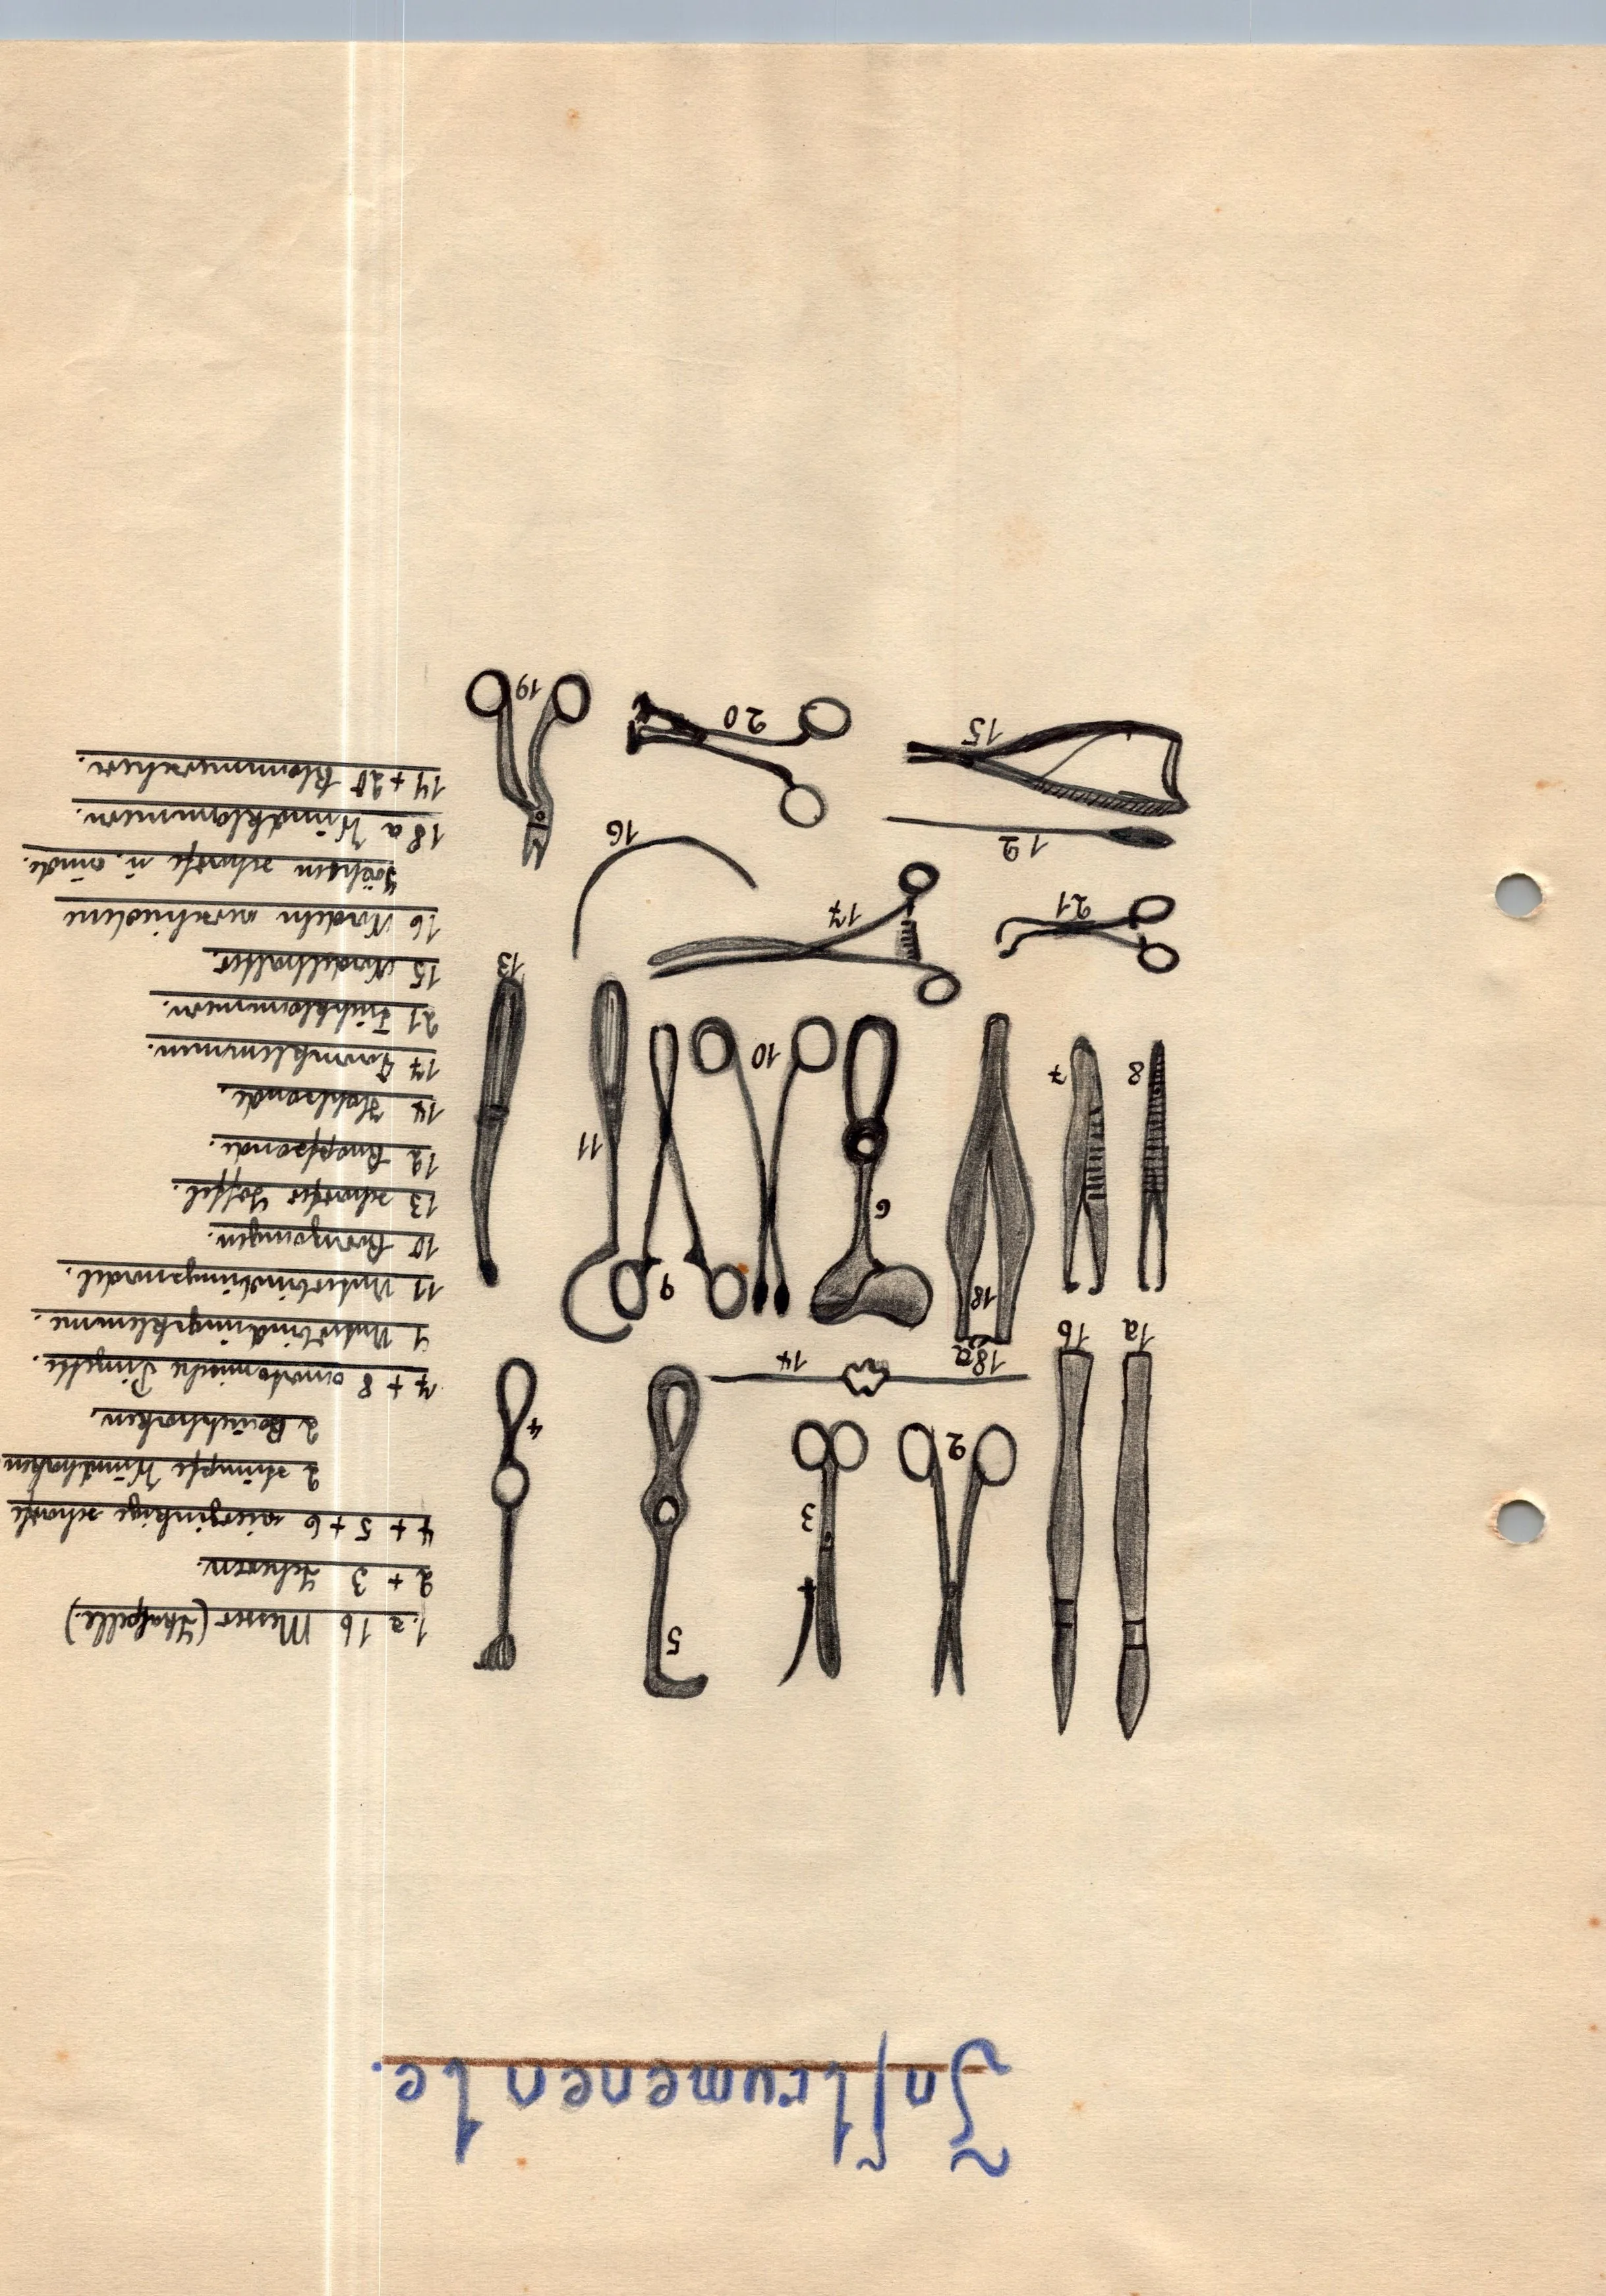 Inſtrumenente.
1.a 1b Messer (Skalpelle.)
2 + 3 Scheren.
4 + 5 + 6 vierzinkige scharfe
2 stumpfe Wundhaken
2 Bauchhaken.
7 + 8 anatomische Pinzette.
9 Unterbindungsklemme.
11 Unterbindungsnadel.
10 Kornzangen.
13 scharfer Löffel.
12 Knopfsonde.
14 Hohlsonde.
17 Darmklemmen.
21 Tuchklammern.
15 Nadelhalter.
16 Nadeln verschiedene
scharfe u. runde.
18a Wundklammern.
19 + 20 Klammerscheren.
1a
1b
2
3
5
4
14
18a
18
8
7
6
10
9
11
13
21
17
16
12
15
20
19